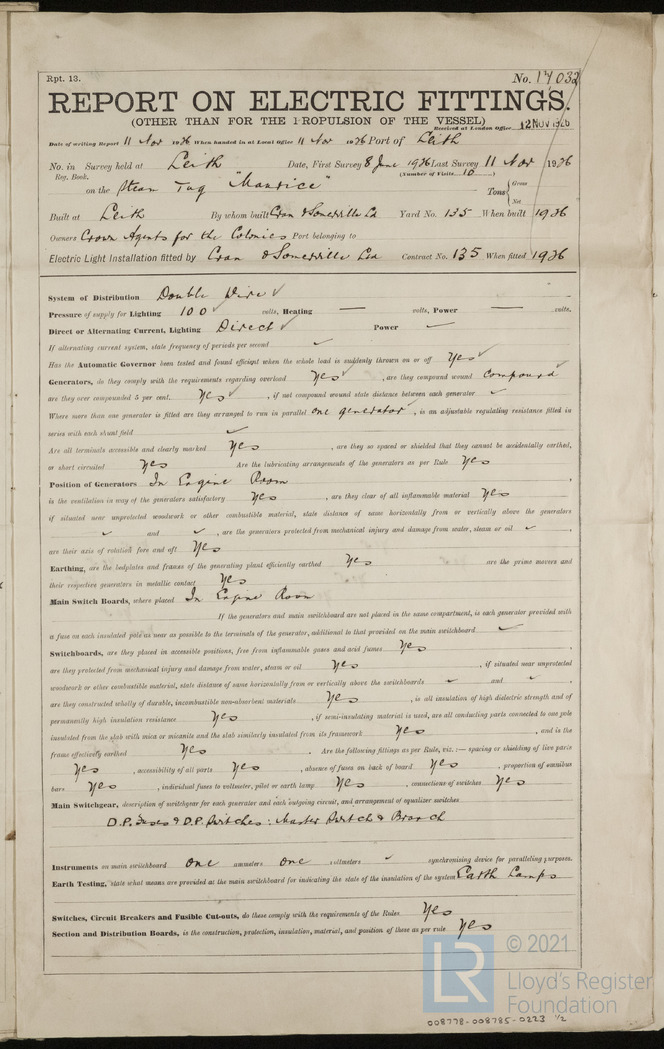 Rpt. 13. No. 17032
REPORT ON ELECTRIC FITTINGS.
(OTHER THAN FOR THE PROPULSION OF THE VESSEL)
Received at London Office 12 NOV 1936
Date of writing Report 11 Nov 1936 When handed in at Local Office 11 Nov 1936 Port of Leith
No. in Survey held at Leith Date, First Survey 8 June 1936 Last Survey 11 Nov 1936
Reg. Book. (Number of Visits 10 )
on the Steam Tug "Maurice" Tons { Gross Net
Built at Leith By whom built Cran & Somerville Ld Yard No. 135 When built 1936
Owners Crown Agents for the Colonies Port belonging to
Electric Light Installation fitted by Cran & Somerville Ltd Contract No. 135 When fitted 1936
System of Distribution Double Wire ✓
Pressure of supply for Lighting 100 ✓ volts, Heating — volts, Power — volts.
Direct or Alternating Current, Lighting Direct ✓ Power ✓
If alternating current system, state frequency of periods per second ✓
Has the Automatic Governor been tested and found efficient when the whole load is suddenly thrown on or off Yes ✓
Generators, do they comply with the requirements regarding overload Yes ✓ , are they compound wound Compound ✓
are they over compounded 5 per cent. Yes ✓ , if not compound wound state distance between each generator ✓
Where more than one generator is fitted are they arranged to run in parallel one generator ✓ , is an adjustable regulating resistance fitted in
series with each shunt field ✓
Are all terminals accessible and clearly marked Yes , are they so spaced or shielded that they cannot be accidentally earthed,
or short circuited Yes Are the lubricating arrangements of the generators as per Rule Yes
Position of Generators In Engine Room ,
is the ventilation in way of the generators satisfactory Yes , are they clear of all inflammable material Yes
if situated near unprotected woodwork or other combustible material, state distance of same horizontally from or vertically above the generators
✓ and ✓ , are the generators protected from mechanical injury and damage from water, steam or oil ✓ ,
are their axis of rotation fore and aft Yes
Earthing, are the bedplates and frames of the generating plant efficiently earthed Yes are the prime movers and
their respective generators in metallic contact Yes
Main Switch Boards, where placed In Engine Room
If the generators and main switchboard are not placed in the same compartment, is each generator provided with
a fuse on each insulated pole as near as possible to the terminals of the generator, additional to that provided on the main switchboard ✓
Switchboards, are they placed in accessible positions, free from inflammable gases and acid fumes Yes ,
are they protected from mechanical injury and damage from water, steam or oil Yes , if situated near unprotected
woodwork or other combustible material, state distance of same horizontally from or vertically above the switchboards ✓ and ✓ ,
are they constructed wholly of durable, incombustible non-absorbent materials Yes , is all insulation of high dielectric strength and of
permanently high insulation resistance Yes , if semi-insulating material is used, are all conducting parts connected to one pole
insulated from the slab with mica or micanite and the slab similarly insulated from its framework Yes , and is the
frame effectively earthed Yes . Are the following fittings as per Rule, viz.:— spacing or shielding of live parts
Yes , accessibility of all parts Yes , absence of fuses on back of board Yes , proportion of omnibus
bars Yes , individual fuses to voltmeter, pilot or earth lamp Yes , connections of switches Yes
Main Switchgear, description of switchgear for each generator and each outgoing circuit, and arrangement of equalizer switches
D.P. Fuses & D.P. Switches: Master Switch & Branch
Instruments on main switchboard one ammeters one voltmeters ✓ synchronising device for paralleling purposes.
Earth Testing, state what means are provided at the main switchboard for indicating the state of the insulation of the system Earth Lamps
Switches, Circuit Breakers and Fusible Cut-outs, do these comply with the requirements of the Rules Yes
Section and Distribution Boards, is the construction, protection, insulation, material, and position of these as per rule Yes
LR
© 2021
Lloyd's Register
Foundation
008778-008785-0223 1/2